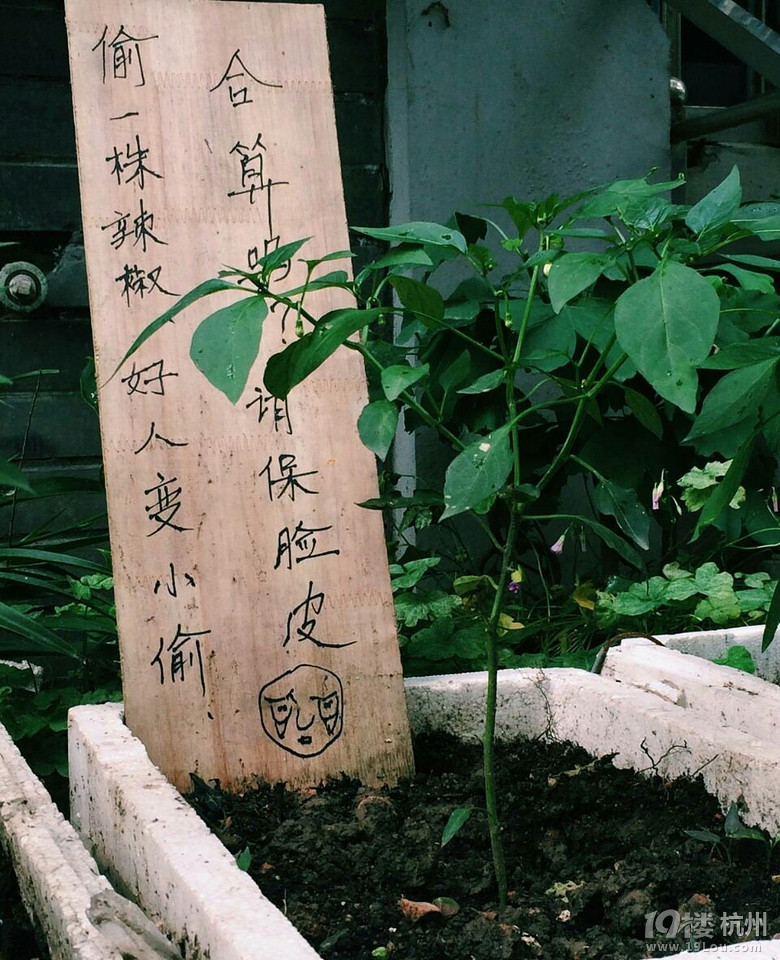 偷一株辣椒、好人变小偷、
合算吗?请保脸皮
19楼 杭州
www.19lou.com